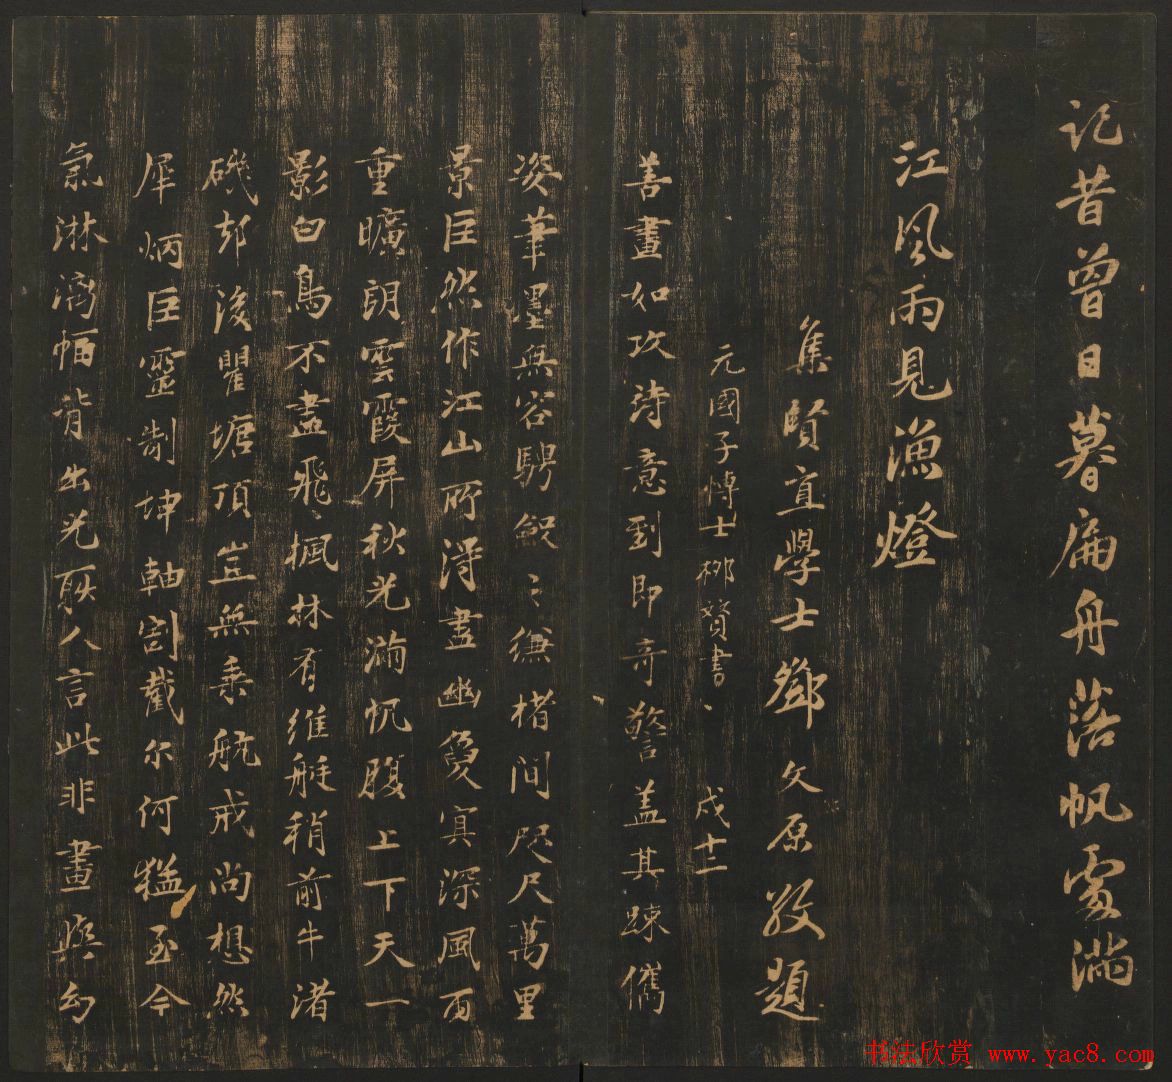 記昔曾日暮扁舟落帆處滿
江風雨見漁燈
集賢直學士鄧文原敬題
元國子博士柳贇書
戊十二
善畫如攻詩意到即奇警蓋其疎儁
姿筆墨無容騁銳〻縑楮間咫尺萬里
景巨然作江山所得盡幽夐冥深風雨
重曠朗雲霞屏秋光滿帆腹上下天一
影白鳥不盡飛楓林有維艇稍前牛渚
磯却後瞿塘頂豈無乘航戒尚想然
犀炳巨靈制坤軸割截尔何猛至今
氣淋漓幅背出光耿人言此非畫與幻
书法欣赏 www.yac8.com